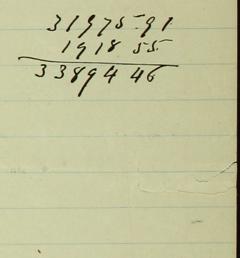 31975.91
1918 55
33894 46